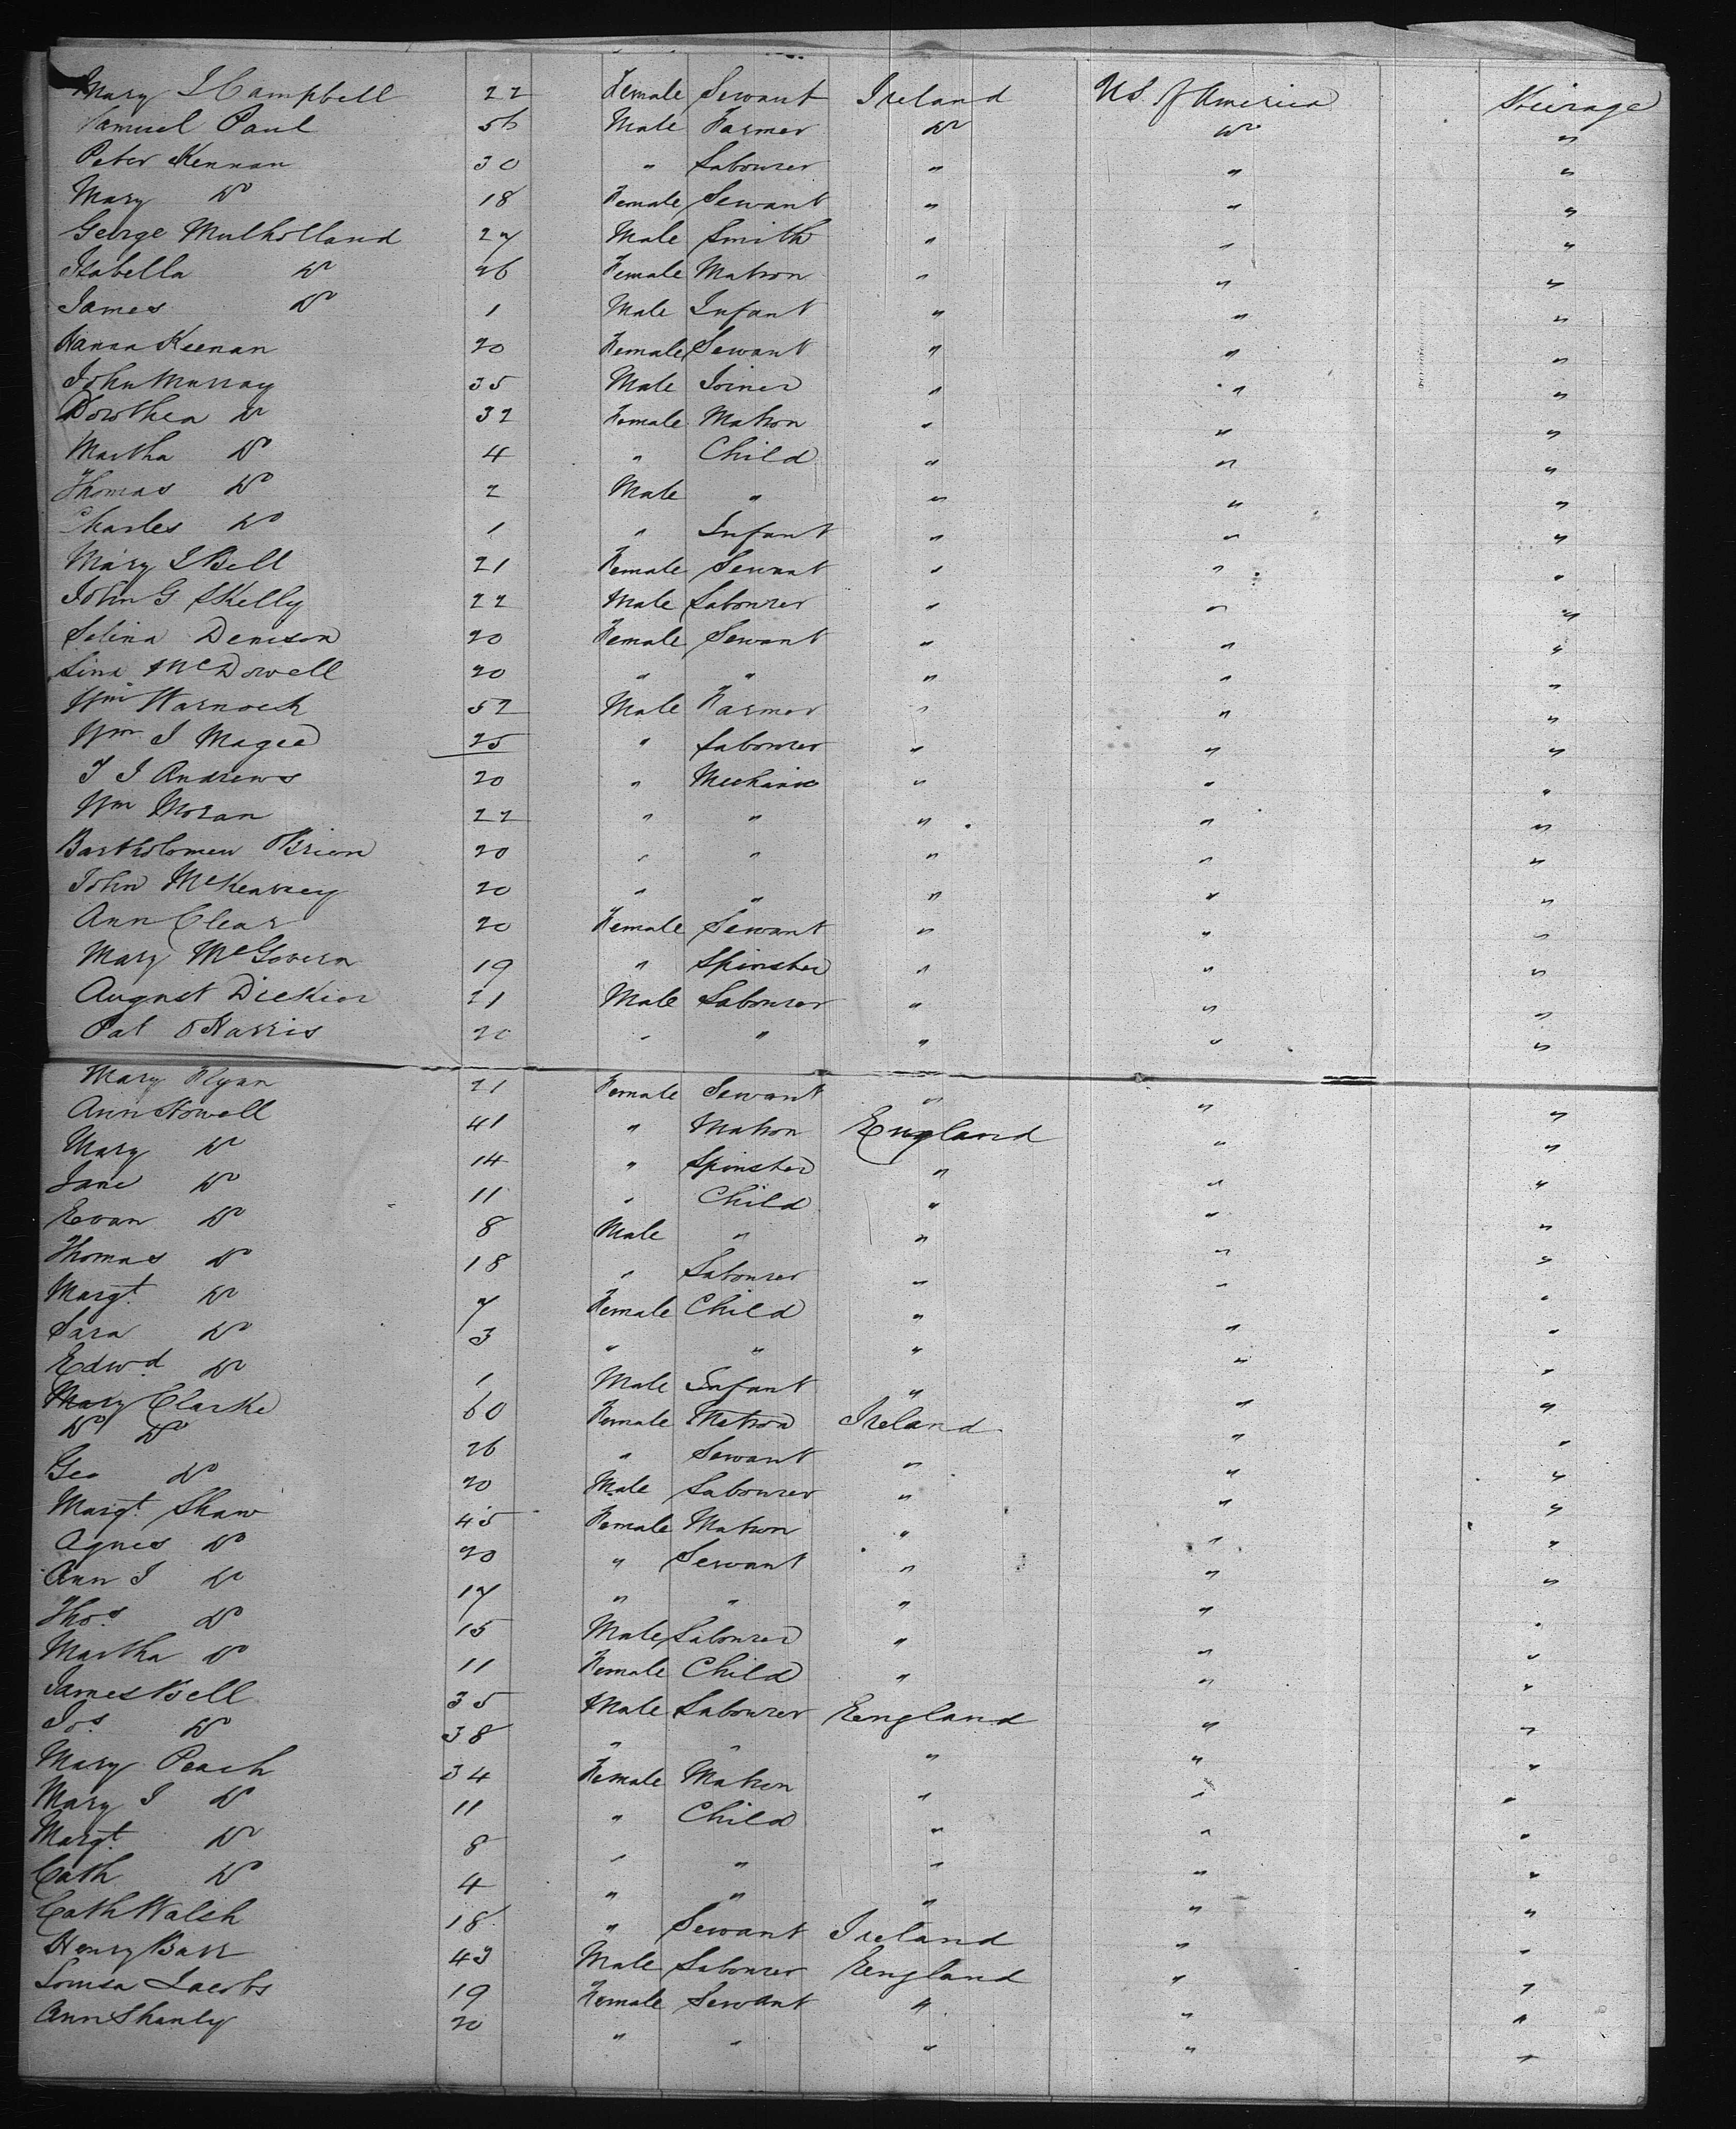 Mary J Campbell 22 Female Servant Ireland U.S. of America Steerage
Samuel Paul 56 Male Farmer Do Do "
Peter Kennan 30 " Labourer " " "
Mary Do 18 Female Servant " " "
George Mulholland 27 Male Smith " " "
Isabella Do 26 Female Matron " " "
James Do 1 Male Infant " " "
Hanna Keenan 20 Female Servant " " "
John Murray 35 Male Joiner " " "
Dorothea Do 32 Female Matron " " "
Martha Do 4 " Child " " "
Thomas Do 2 Male " " " "
Charles Do 1 " Infant " " "
Mary J Bell 21 Female Servant " " "
John G Skelly 22 Male Labourer " " "
Selina Denison 20 Female Servant " " "
McDowell 20 " " " " "
Wm Warnock 52 Male Farmer " " "
Wm J Magee 25 " Labourer " " "
T J Andrews 20 " Mechanic " " "
Wm Moran 22 " " " " "
Bartholomew OBrien 20 " " " " "
John McKearney 20 " " " " "
Ann Clear 20 Female Servant " " "
Mary McGovern 19 " Spinster " " "
August 21 Male Labourer " " "
Pat OHarris 20 " " " " "
Mary Flynn 21 Female Servant " " "
Ann Howell 41 " Matron England " "
Mary Do 14 " Spinster " " "
Jane Do 11 " Child " " "
Evan Do 8 Male " " " "
Thomas Do 18 " Labourer " " "
Margt. Do 7 Female Child " " "
Sara Do 3 " " " " "
Edwd. Do 1 Male Infant " " "
Mary Clarke 60 Female Matron Ireland " "
Do Do 26 " Servant " " "
Geo Do 20 Male Labourer " " "
Margt. Shaw 45 Female Matron " " "
Agnes Do 20 " Servant " " "
Ann J Do 17 " " " " "
Thos. Do 15 Male Labourer " " "
Martha Do 11 Female Child " " "
James Bell 35 Male Labourer England " "
Jos. Do 38 " " " " "
Mary Peach 34 Female Matron " " "
Mary J Do 11 " Child " " "
Margt. Do 8 " " " " "
Cath Do 4 " " " " "
Cath Walsh 18 " Servant Ireland " "
Henry Barr 43 Male Labourer England " "
Louisa Jacobs 19 Female Servant " " "
Ann Shanly 20 " " " " "